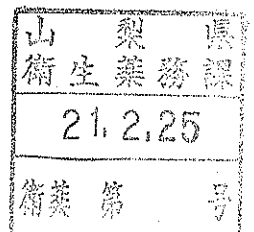 山梨県
衛生薬務課
21.2.25
衛薬第 号